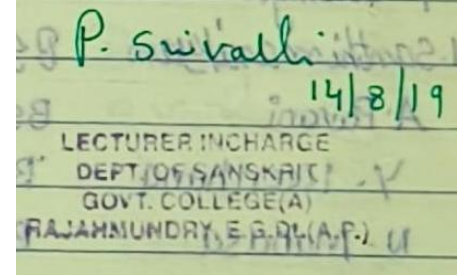 P. Srivalli
14/8/19
LECTURER INCHARGE
DEPT. OF SANSKRIT
GOVT. COLLEGE(A)
RAJAHMUNDRY, E.G.Dt.(A.P.)